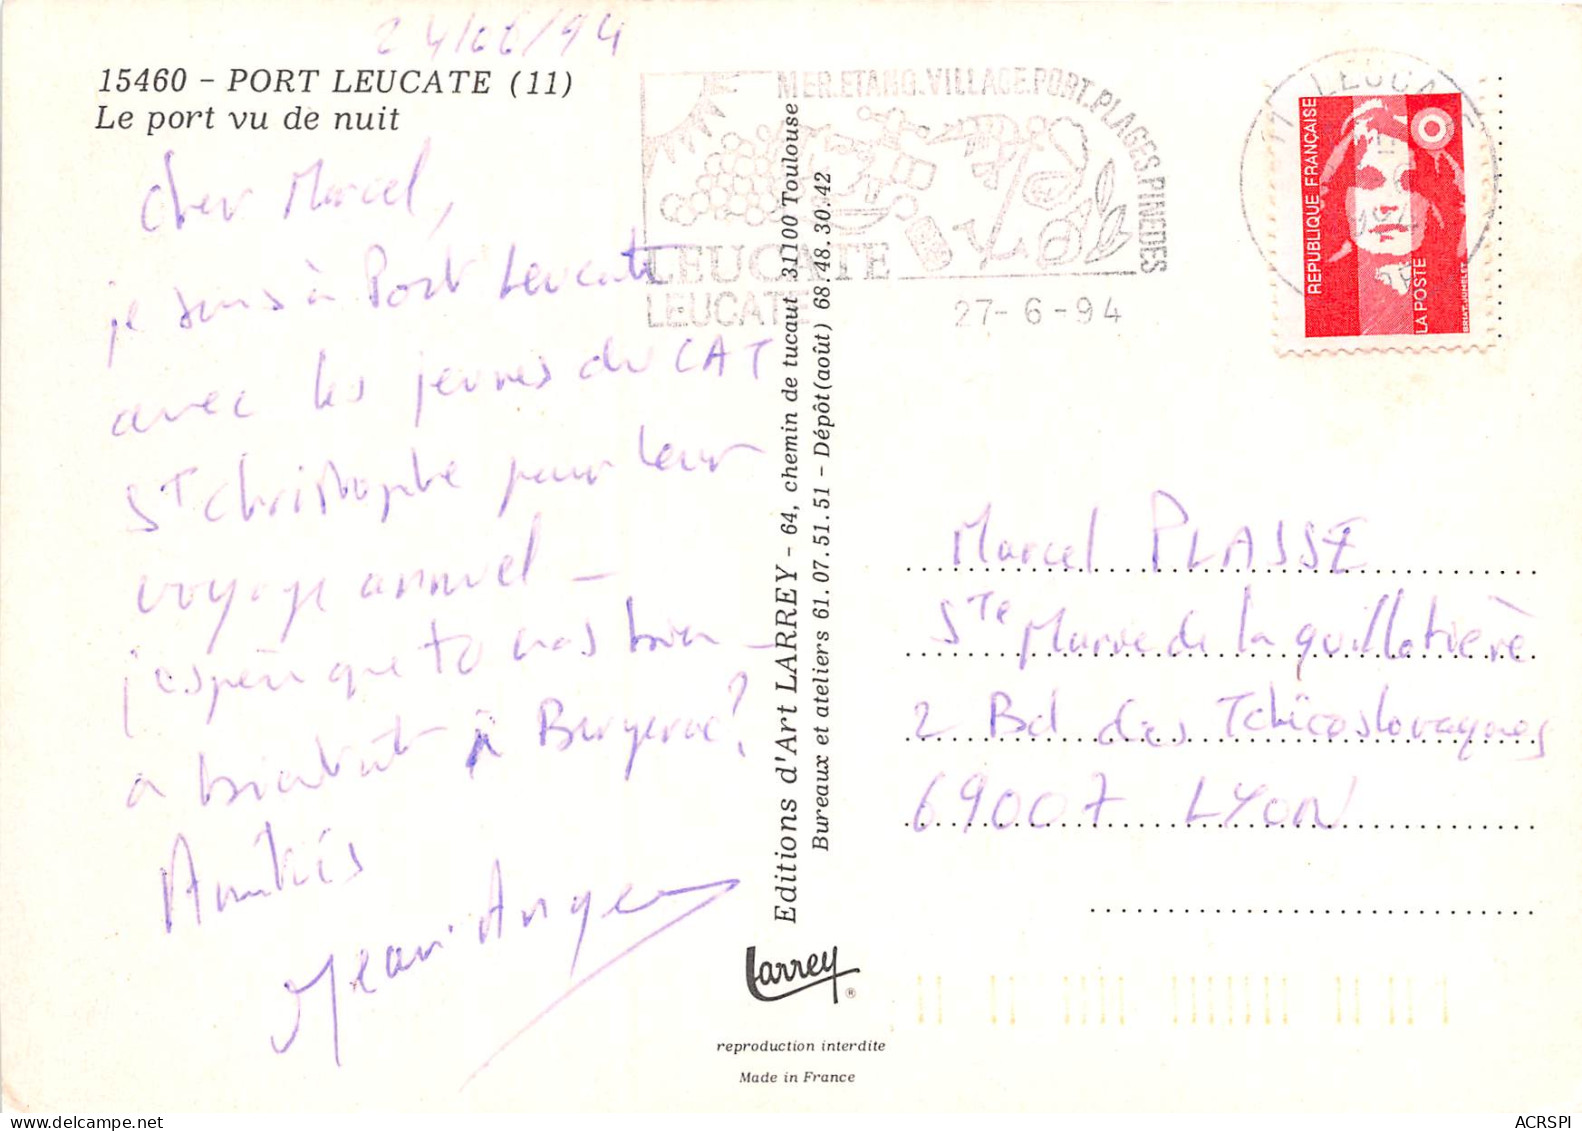 24/06/94
15460 - PORT LEUCATE (11)
Le port vu de nuit
Cher Marcel,
je suis à Port Leucate
avec les jeunes du CAT
St Christophe pour leur
voyage annuel –
j'espère que tu vas bien –
a bientôt à Bergerac?
Amitiés
Jean-Ange
MER.ETANG.VILLAGE.PORT.PLAGES.PINEDES
LEUCATE
LEUCATE
27-6-94
11 LEUCATE
REPUBLIQUE FRANÇAISE
LA POSTE
BRIAT-JUMELET
Editions d'Art LARREY - 64, chemin de tucaut 31100 Toulouse
Bureaux et ateliers 61.07.51.51 - Dépôt(août) 68.48.30.42
Marcel PLASSE
Ste Marie de la guillotière
2 Bd des Tchécoslovaques
69007 LYON
Larrey ®
reproduction interdite
Made in France
ACRSPI